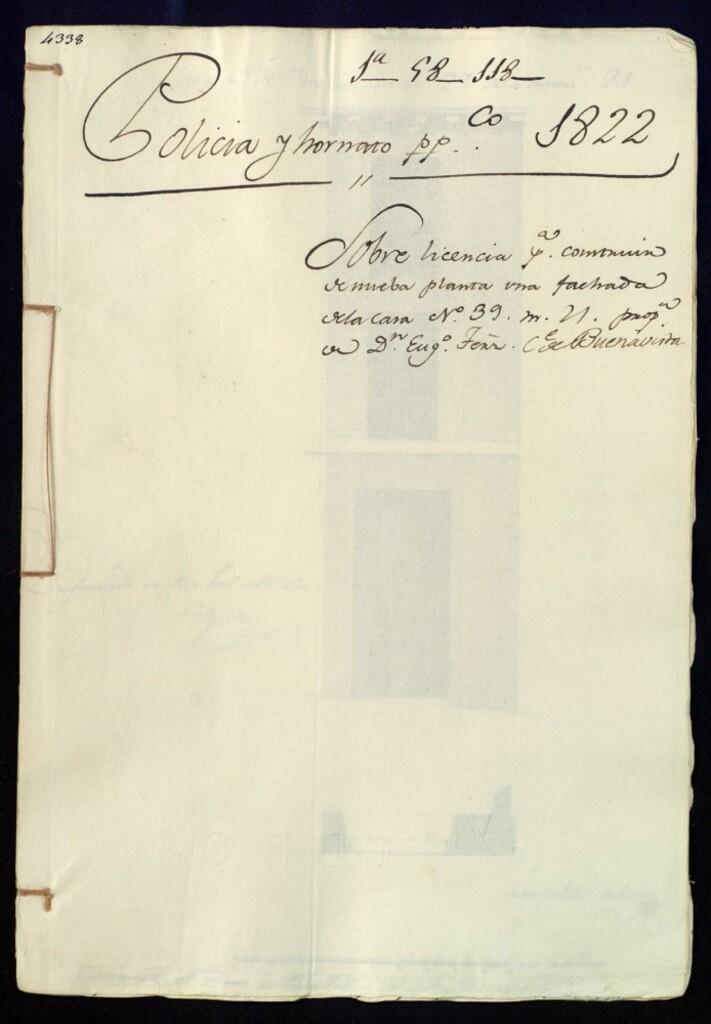 4338
1ª 58 118
Policia y hornato pp.co 1822
Sobre licencia pª. construir
de nueba planta una fachada
de la casa Nº 39. m. 21. propª
de Dn Eugº. Ferz. Ce de Buenavista